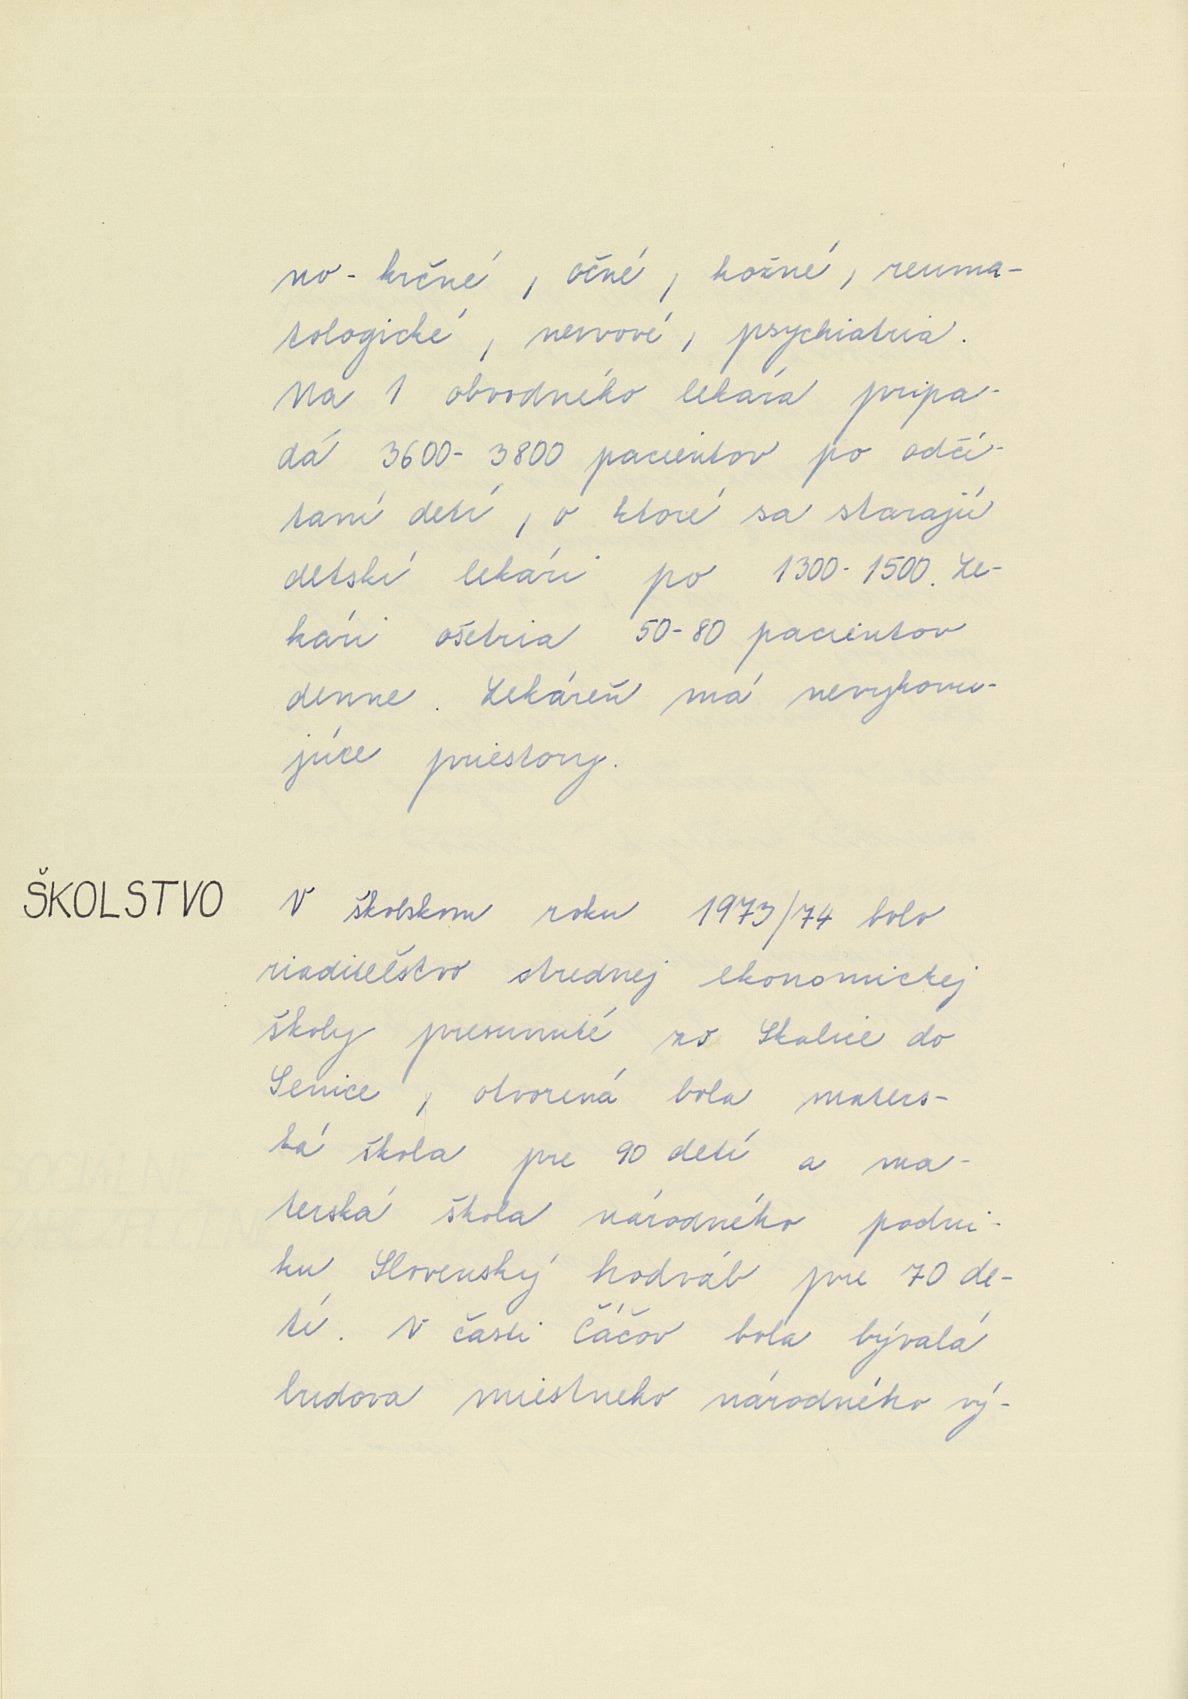 no-krčné, očné, kožné, reuma-
tologické, nervové, psychiatria.
Na 1 obvodného lekára pripa-
dá 3600-3800 pacientov po odčí-
taní detí, o ktoré sa starajú
detskí lekári po 1300-1500. Le-
kári ošetria 50-80 pacientov
denne. Lekáreň má nevyhovu-
júce priestory.
ŠKOLSTVO
V školskom roku 1973/74 bolo
riaditeľstvo strednej ekonomickej
školy presunuté zo Skalice do
Senice, otvorená bola maters-
ká škola pre 90 detí a ma-
terská škola národného podni-
ku Slovenský hodváb pre 70 de-
tí. V časti Čáčov bola bývalá
budova miestneho národného vý-